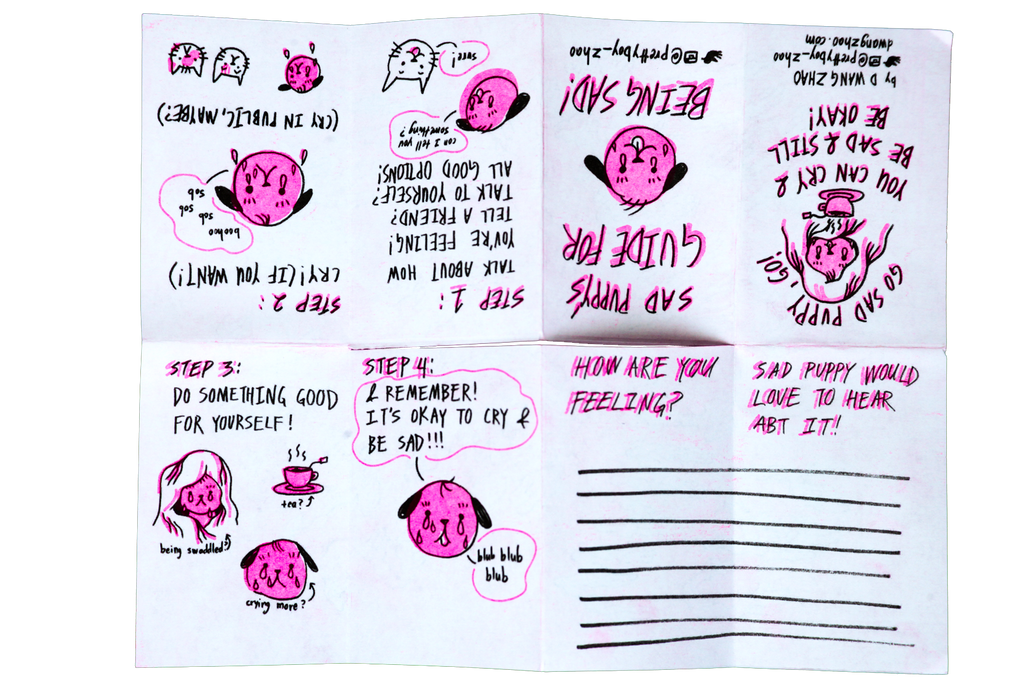 SAD PUPPY'S
GUIDE FOR
BEING SAD!
@prettyboy-zhao
STEP 1:
TALK ABOUT HOW
YOU'RE FEELING!
TELL A FRIEND?
TALK TO YOURSELF?
ALL GOOD OPTIONS!
can I tell you
something?
sure!
STEP 2:
CRY! (IF YOU WANT!)
boohoo
sob sob
sob
(CRY IN PUBLIC, MAYBE?)
STEP 3:
DO SOMETHING GOOD
FOR YOURSELF!
tea?
being swaddled?
crying more?
STEP 4:
& REMEMBER!
IT'S OKAY TO CRY &
BE SAD!!!
blub blub
blub
HOW ARE YOU
FEELING?
SAD PUPPY WOULD
LOVE TO HEAR
ABT IT!!
GO SAD PUPPY, GO!
YOU CAN CRY &
BE SAD & STILL
BE OKAY!
by D WANG ZHAO
@prettyboy-zhao
dwangzhao.com